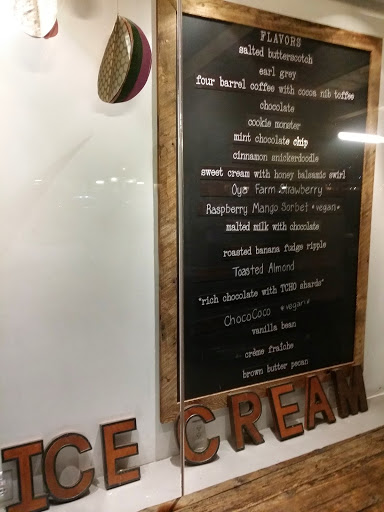 FLAVORS
salted butterscotch
earl grey
four barrel coffee with cocoa nib toffee
chocolate
cookie monster
mint chocolate chip
cinnamon snickerdoodle
sweet cream with honey balsamic swirl
Oya Farm Strawberry
Raspberry Mango Sorbet *vegan*
malted milk with chocolate
roasted banana fudge ripple
Toasted Almond
"rich chocolate with TCHO shards"
ChocoCoco *vegan*
vanilla bean
crème fraîche
brown butter pecan
ICE CREAM